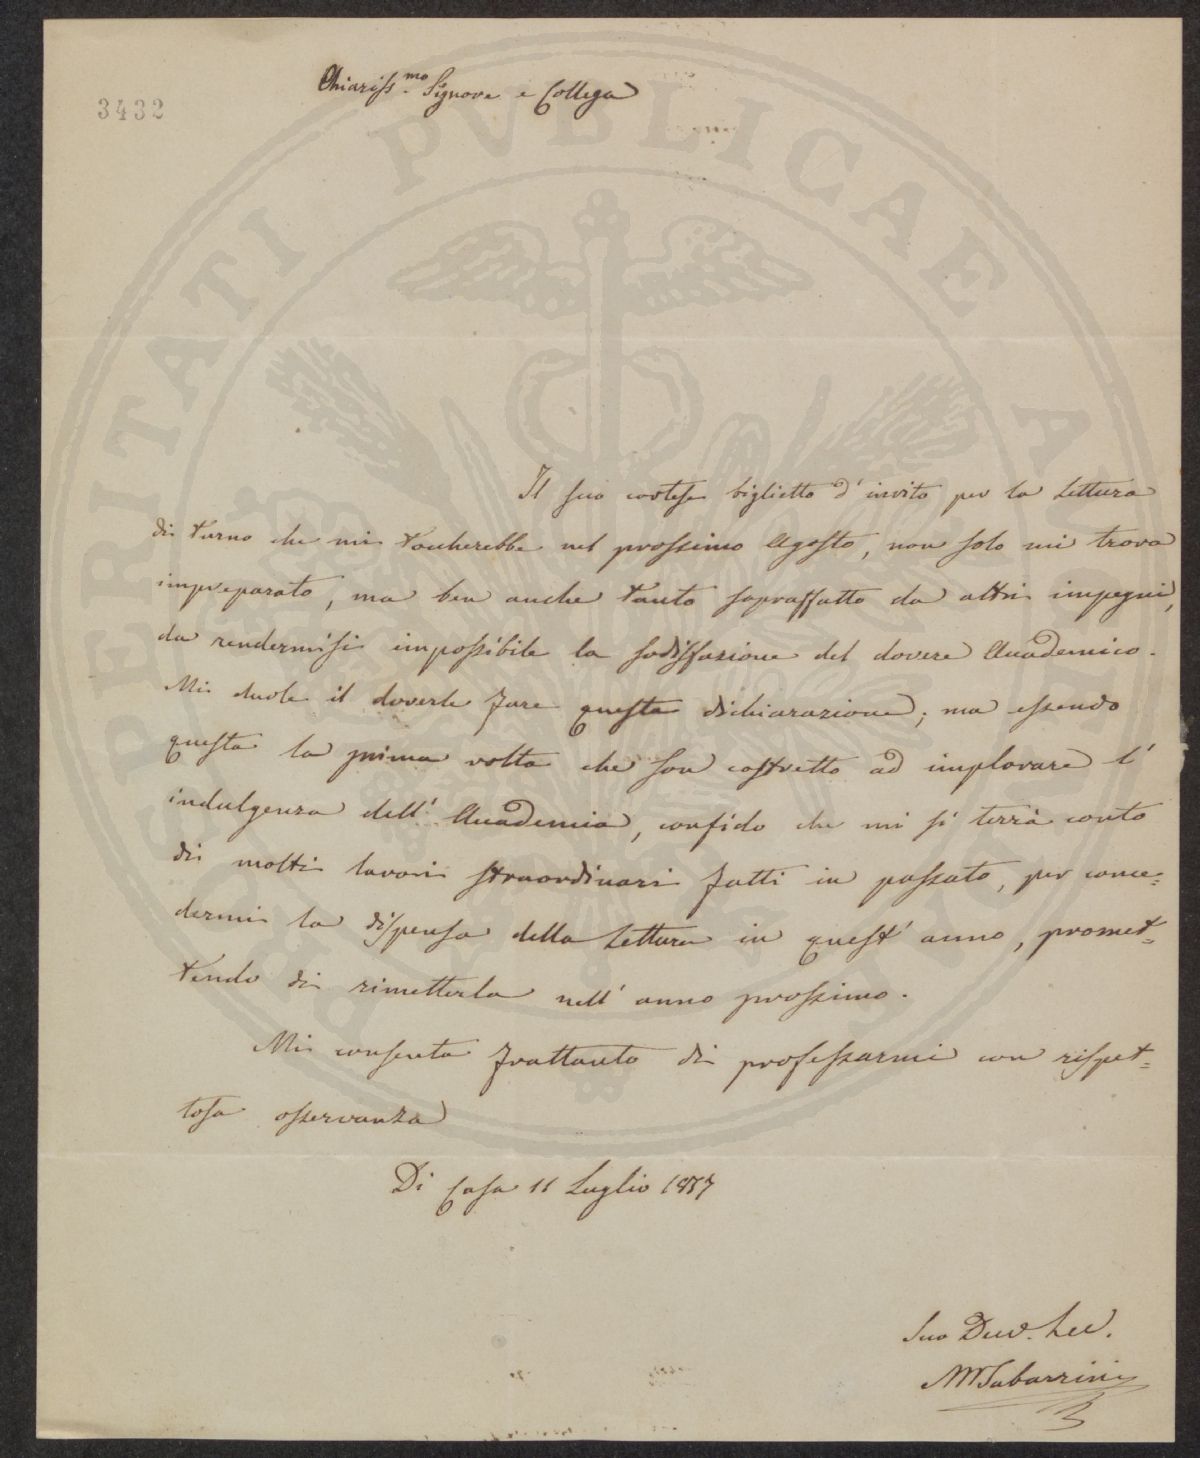 3432
Chiariss.mo Signore e Collega
Il suo cortese biglietto d'invito per la Lettura
di turno che mi toccherebbe nel prossimo Agosto, non solo mi trova
impreparato, ma ben anche tanto sopraffatto da altri impegni,
da rendermisi impossibile la sodisfazione del dovere Accademico.
Mi duole il doverle fare questa dichiarazione; ma essendo
questa la prima volta che son costretto ad implorare l'
indulgenza dell'Accademia, confido che mi si terrà conto
di molti lavori straordinari fatti in passato, per conce=
dermi la dispensa della Lettura in quest'anno, promet=
tendo di rimetterla nell'anno prossimo.
Mi consenta frattanto di professarmi con rispet=
tosa osservanza
Di Casa 11 Luglio 1857
Suo Dev.
M Tabarrini
PROSPERITATI PVBLICAE AVGENDAE